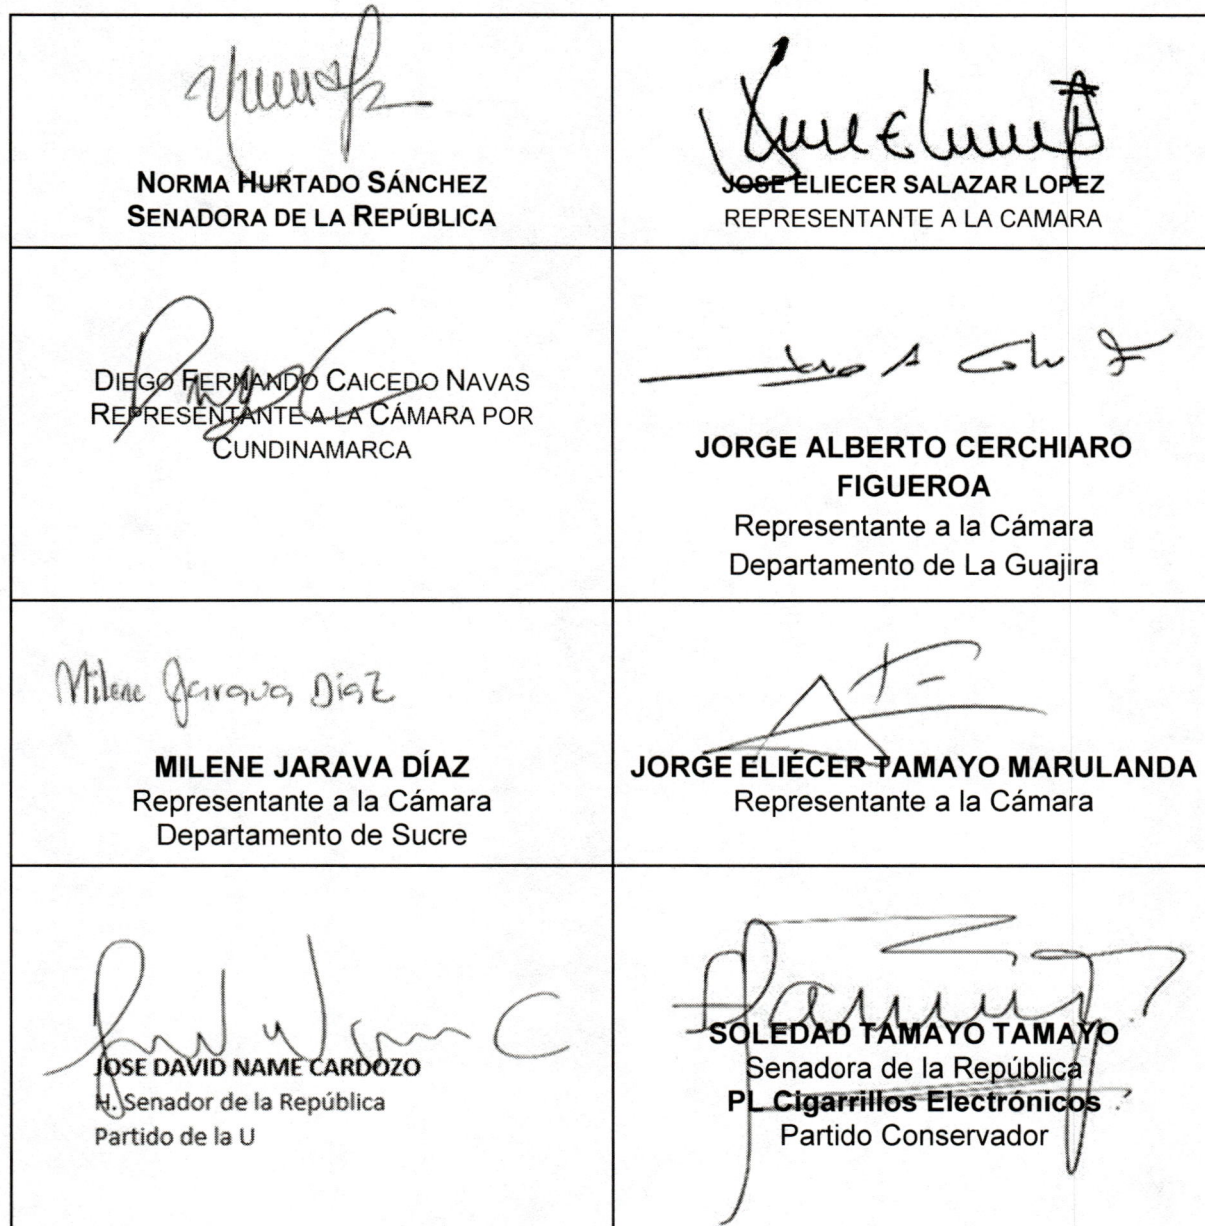 NORMA HURTADO SÁNCHEZ
SENADORA DE LA REPÚBLICA
JOSE ELIECER SALAZAR LOPEZ
REPRESENTANTE A LA CAMARA
DIEGO FERNANDO CAICEDO NAVAS
REPRESENTANTE A LA CÁMARA POR
CUNDINAMARCA
JORGE ALBERTO CERCHIARO
FIGUEROA
Representante a la Cámara
Departamento de La Guajira
Milene Jarava Díaz
MILENE JARAVA DÍAZ
Representante a la Cámara
Departamento de Sucre
JORGE ELIÉCER TAMAYO MARULANDA
Representante a la Cámara
JOSE DAVID NAME CARDOZO
H. Senador de la República
Partido de la U
SOLEDAD TAMAYO TAMAYO
Senadora de la República
PL Cigarrillos Electrónicos
Partido Conservador